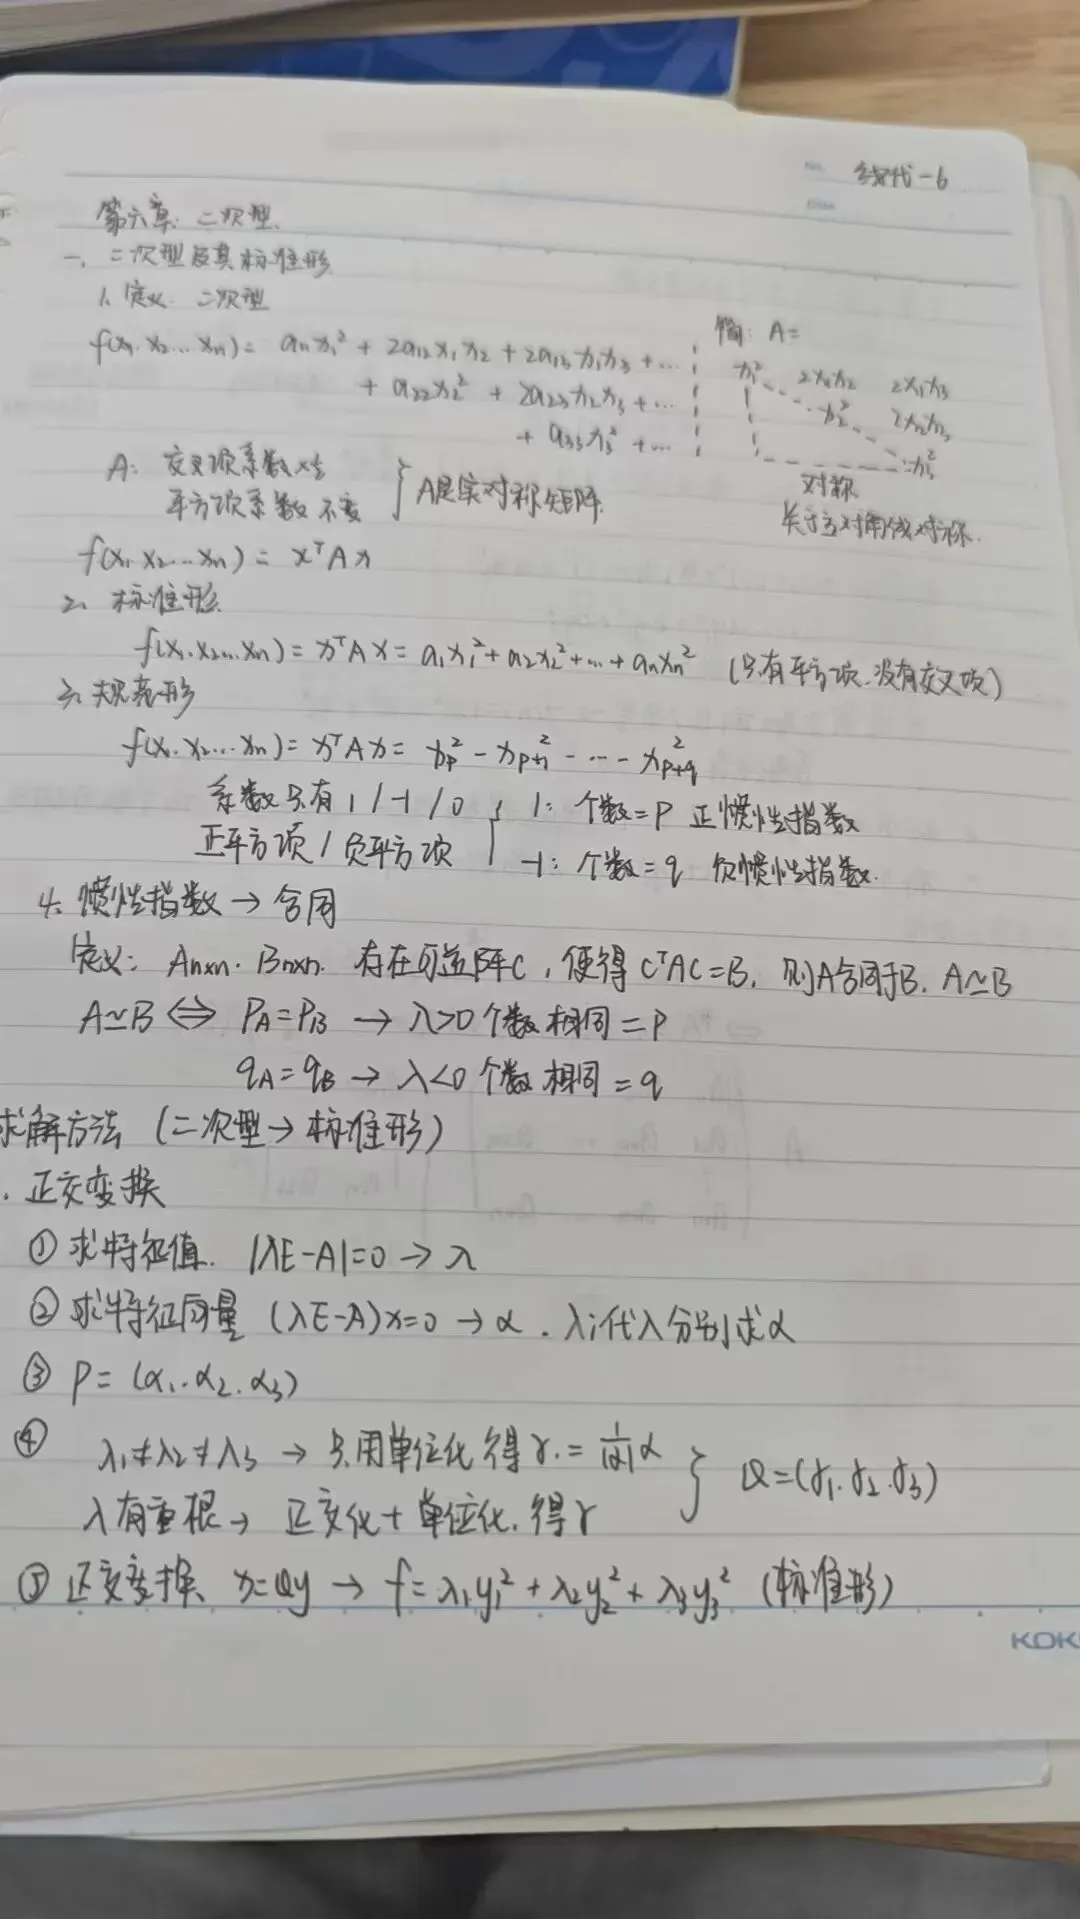 线代-6
第六章. 二次型.
一、二次型及其标准形
1. 定义. 二次型
f(x₁.x₂…xₙ)= a₁₁x₁² + 2a₁₂x₁x₂ + 2a₁₃x₁x₃ + …
+ a₂₂x₂² + 2a₂₃x₂x₃ + …
+ a₃₃x₃² + …
A= 
x₁² 2x₁x₂ 2x₁x₃
x₂² 2x₂x₃
x₃²
对称
关于主对角线对称.
A: 交叉项系数
平方项系数不变
} A是实对称矩阵.
f(x₁.x₂…xₙ)= xᵀAx
2. 标准形
f(x₁.x₂…xₙ)= xᵀAx= a₁x₁²+a₂x₂²+…+aₙxₙ² (只有平方项.没有交叉项)
3. 规范形
f(x₁.x₂…xₙ)= xᵀAx= xₚ² - xₚ₊₁² - … - xₚ₊q²
系数只有 1/-1/0
正平方项/负平方项
{ 1: 个数=p 正惯性指数
-1: 个数=q 负惯性指数.
4. 惯性指数→合同
定义: Aₙₓₙ. Bₙₓₙ. 存在可逆阵C, 使得CᵀAC=B, 则A合同于B. A≃B
A≃B ⇔ P_A=P_B → λ>0个数相同=p
q_A=q_B → λ<0个数相同=q
求解方法 (二次型→标准形)
. 正交变换
① 求特征值. |λE-A|=0→λ
② 求特征向量 (λE-A)x=0 →α. λi代入分别求α
③ P=(α₁.α₂.α₃)
④ λ₁≠λ₂≠λ₃ → 只用单位化 得γ.=1/|α| α
λ有重根→ 正交化+单位化. 得γ
} Q=(γ₁.γ₂.γ₃)
⑤ 正交变换. x=Qy → f=λ₁y₁²+λ₂y₂²+λ₃y₃² (标准形)